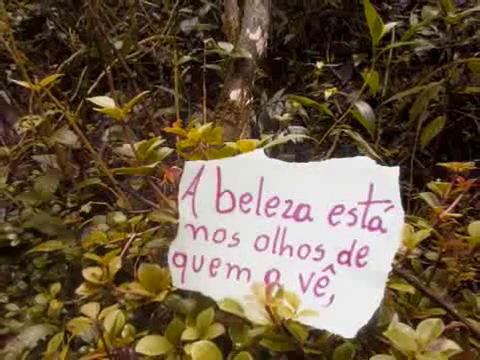 A beleza está
nos olhos de
quem a vê,